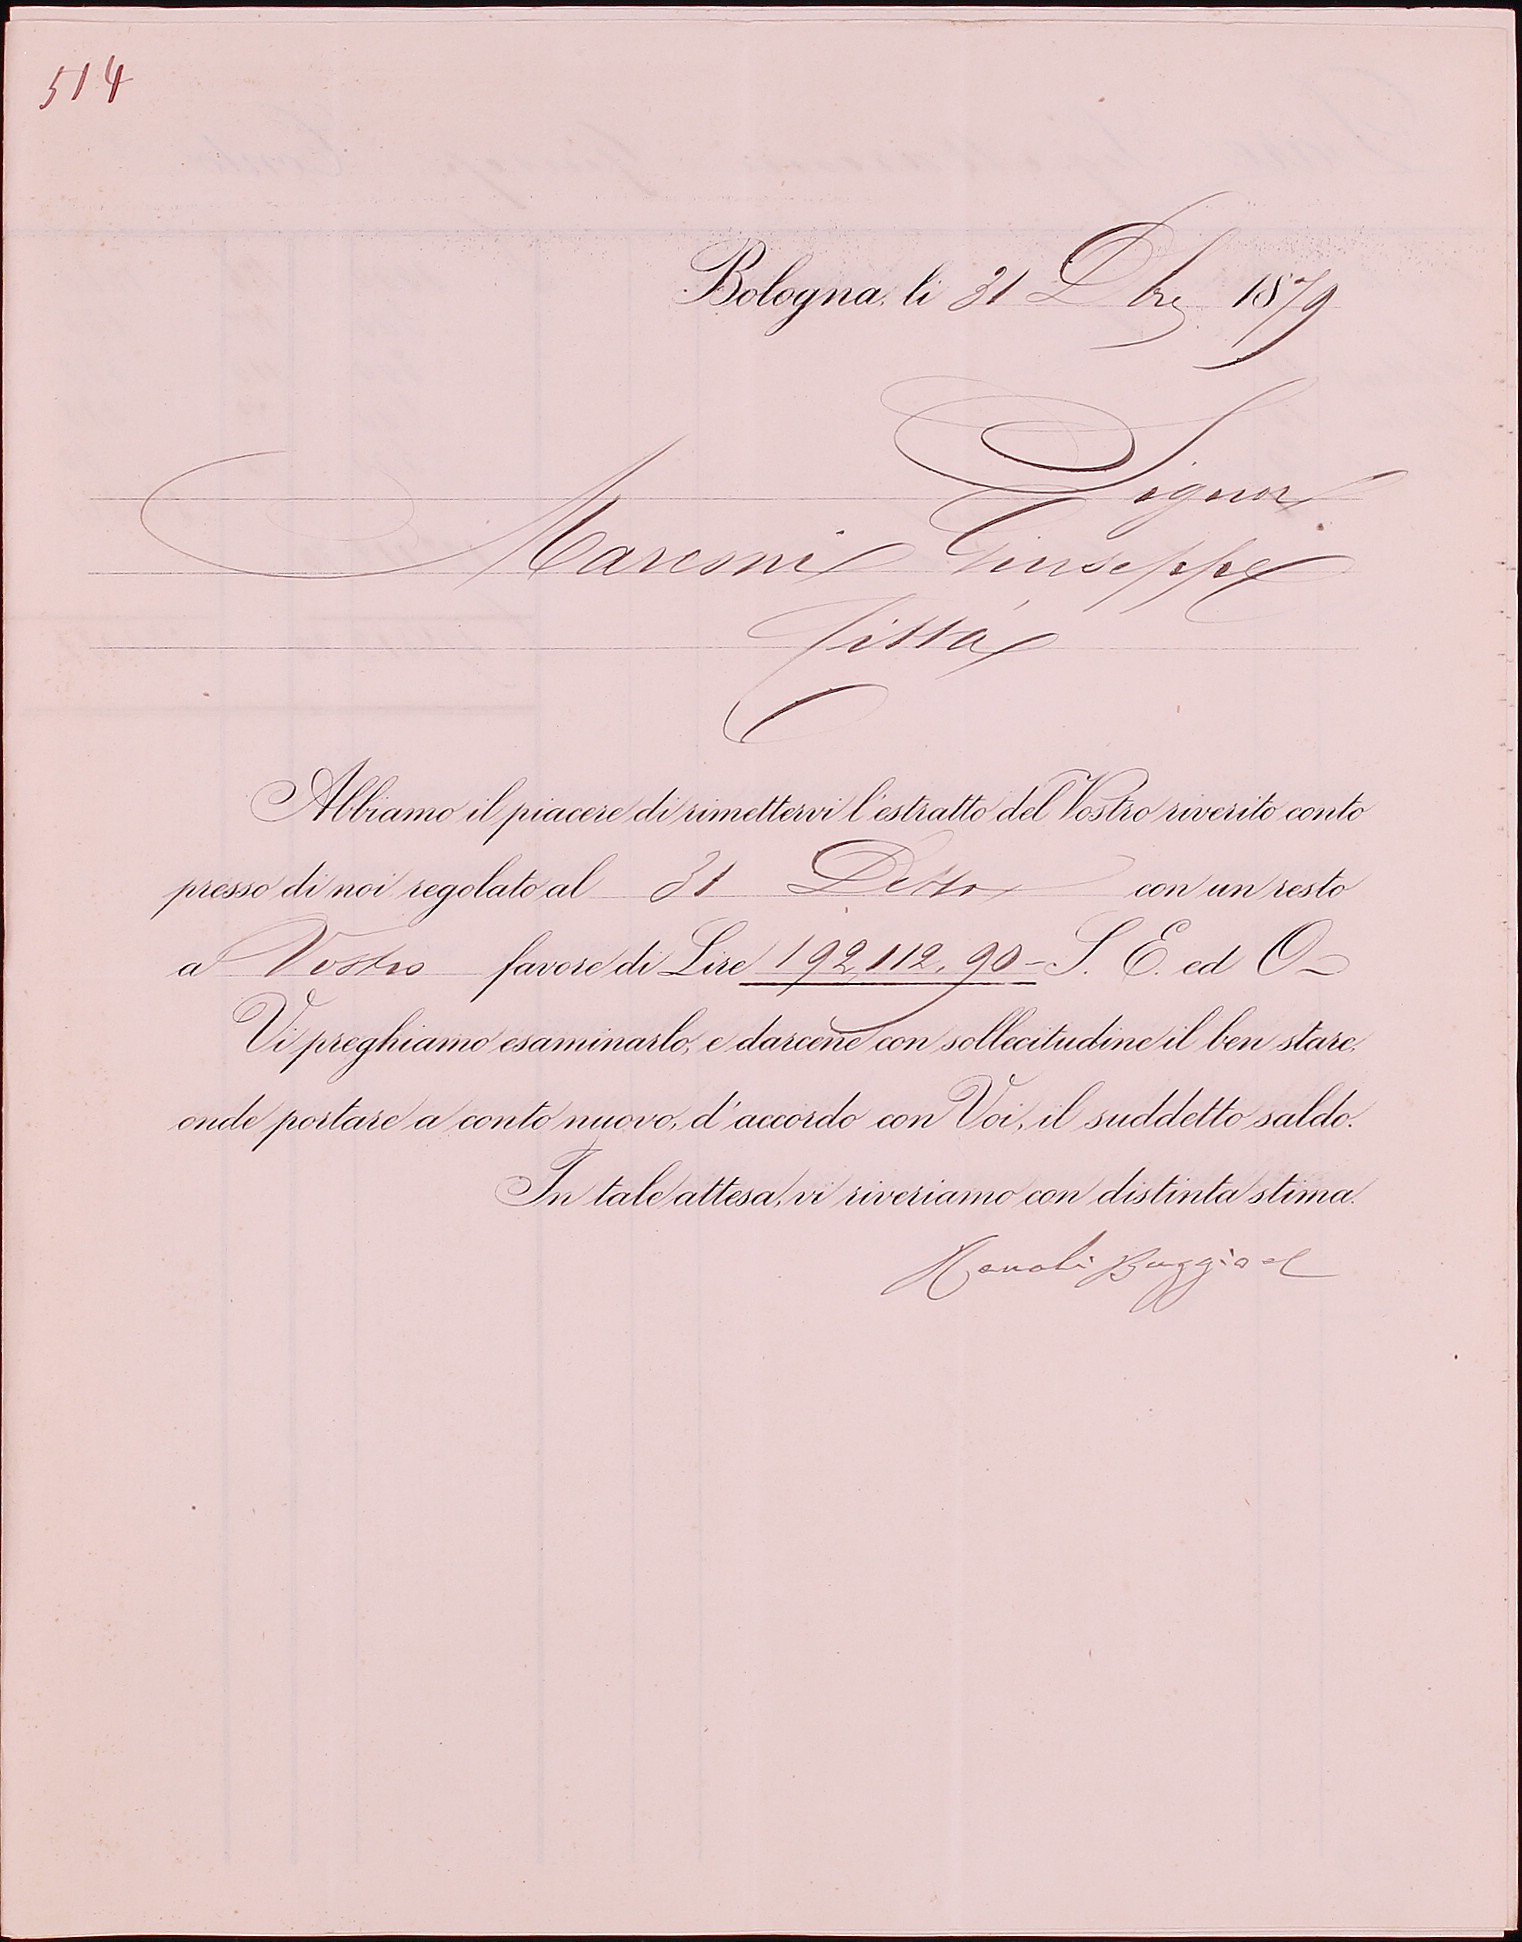 514
Bologna, li 31 Dbre 1879
Signor
Marconi Giuseppe
Città
Abbiamo il piacere di rimettervi l'estratto del Vostro riverito conto
presso di noi regolato al 31 Detto con un resto
a Vostro favore di Lire 192,112,90- S. E. ed O
Vi preghiamo esaminarlo, e darcene con sollecitudine il ben stare,
onde portare a conto nuovo, d'accordo con Voi, il suddetto saldo.
In tale attesa, vi riveriamo con distinta stima.